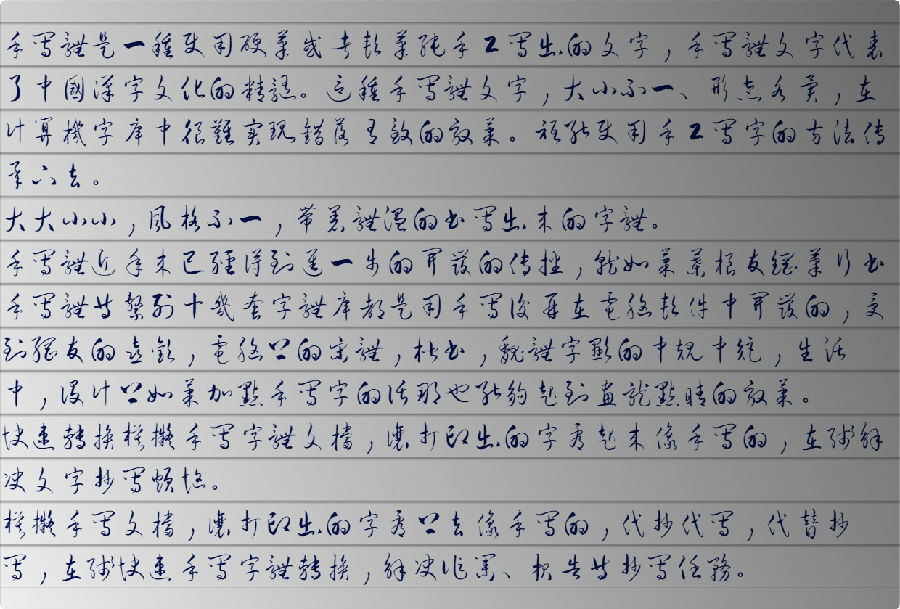 手寫體是一種使用硬筆或者軟筆純手工寫出的文字，手寫體文字代表
了中國漢字文化的精髓。這種手寫體文字，大小不一、形態各異，在
計算機字庫中很難實現錯落有致的效果。祇能使用手工寫字的方法傳
承下去。
大大小小，風格不一，帶着體溫的書寫出來的字體。
手寫體近年來已經得到進一步的開發的傳播，就如某某根友經筆行書
手寫體等繫列十幾套字體庫都是用手寫後再在電腦軟件中開發的，受
到網友的喜歡，電腦上的宋體，楷書，魏體字顯的中規中矩，生活
中，設計上如果加點手寫字的話那也能夠起到畫龍點睛的效果。
快速轉換模擬手寫字體文檔，讓打印出的字看起來像手寫的，在綫解
決文字抄寫煩惱。
模擬手寫文檔，讓打印出的字看上去像手寫的，代抄代寫，代替抄
寫，在綫快速手寫字體轉換，解決作業、報告等抄寫任務。